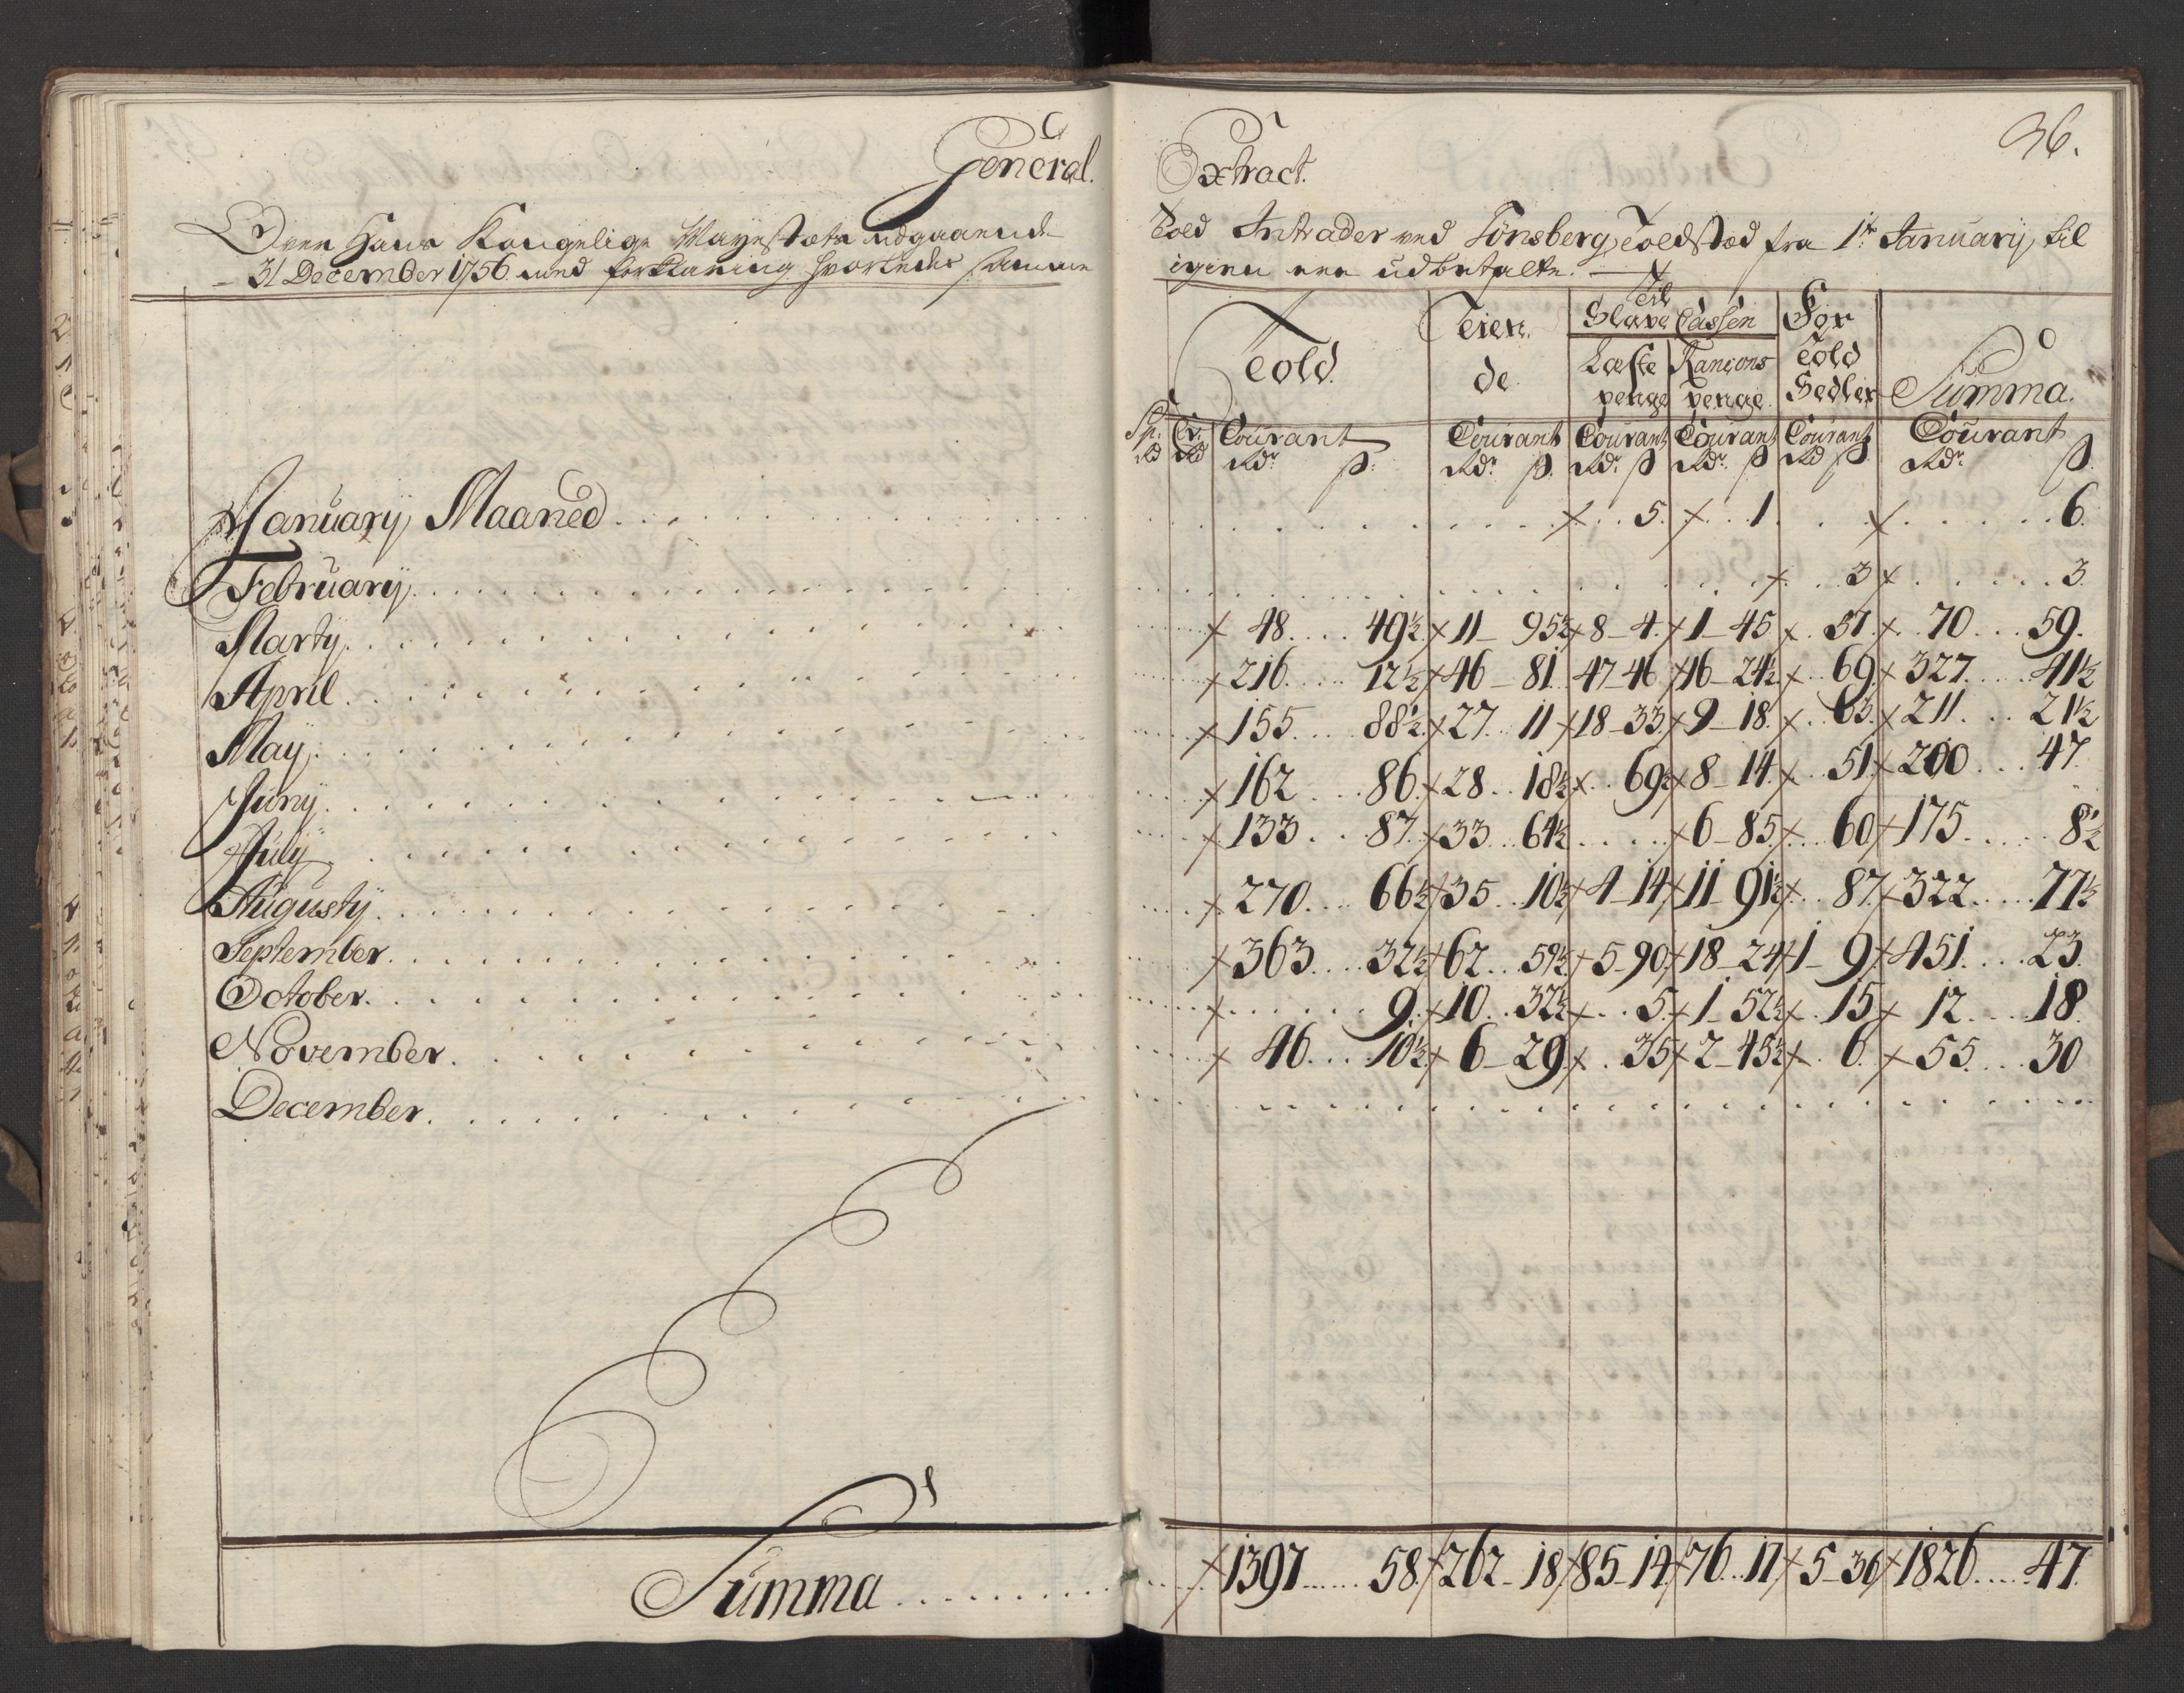 General. Extract. 36.
Over Hans Kongelige Mayestæts udgaaende Told Intrader ved Tønsberg Toldsted fra 1te January til
31 December 1756 med forklaring hvorledes samme igien ere udbetalte.
Told. Teien de Til Slave Cassen Læste penge Rançons penge. For Told Sedler Summa.
Sp: Rd Cr. Rd Courant Rdr ß: Courant Rdr ß. Courant Rdr ß Courant Rdr ß Courant Rd ß. Courant Rdr ß.
January Maaned . . . 5. 1 6.
February . . . 3 3.
Marty . . . 48 49½ 11 - 95½ 8 - 4. 1 - 45 57. 70 59.
April . . . 216 12½ 46 - 81 47 - 46 16 - 24½ 69 327 41½
May . . . 155 88½ 27 11 18 - 33 9 - 18. 63. 211 21½
Juny . . . 162 86 28 18½ 69½ 8 - 14 51 200 47.
July . . . 133 87 33 64½ 6 - 85 60 175 8½
Augusty . . . 270 66½ 35 10½ 4 - 14 11 - 91½ 87 322 77½
September . . . 363 32½ 62 59½ 5 - 90 18 - 24 1 - 9 451 23.
October . . . 9. 10 32½ 5. 1 - 52½ 15 12 18.
November . . . 46 10½ 6 - 29 35 2 - 45½ 6. 55 30
December . . .
Summa . . . 1397 58. 262 - 18 85 - 14 76 17 5 - 36 1826 47.